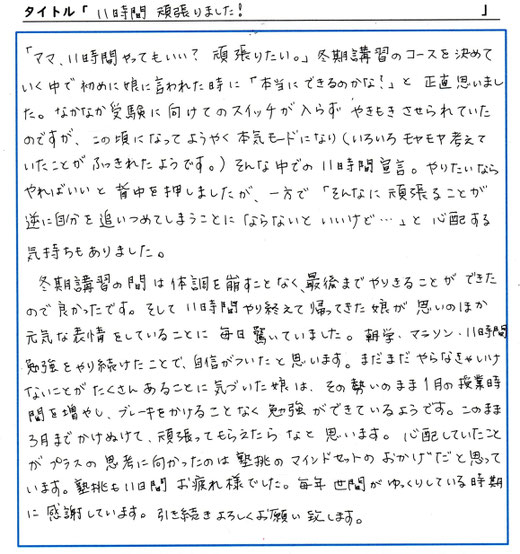 タイトル「 11時間 頑張りました! 」
「ママ、11時間やってもいい? 頑張りたい。」冬期講習のコースを決めて
いく中で初めに娘に言われた時に「本当にできるのかな!」と 正直思いまし
た。なかなか受験に向けてのスイッチが入らず やきもきさせられていた
のですが、この頃になってようやく本気モードになり(いろいろモヤモヤ考えて
いたことが ふっきれたようです。)そんな中での11時間宣言。やりたいなら
やればいいと 背中を押しましたが、一方で「そんなに頑張ることが
逆に自分を追いつめてしまうことに ならないと いいけど…」と 心配する
気持ちもありました。
冬期講習の間は体調を崩すことなく、最後までやりきることが できた
ので良かったです。そして11時間やり終えて帰ってきた娘が 思いのほか
元気な表情をしていることに 毎日驚いていました。朝学・マラソン・11時間
勉強をやり続けたことで、自信がついたと思います。まだまだ やらなきゃいけ
ないことが たくさんあることに気づいた娘は、その勢いのまま1月の授業時
間を増やし、ブレーキをかけることなく勉強ができているようです。このまま
3月までかけぬけて、頑張ってもらえたら なと 思います。心配していたこと
がプラスの思考に向かったのは塾挑のマインドセットのおかげだと思って
います。塾挑も11日間 お疲れ様でした。毎年 世間がゆっくりしている時期
に感謝しています。引き続きよろしくお願い致します。